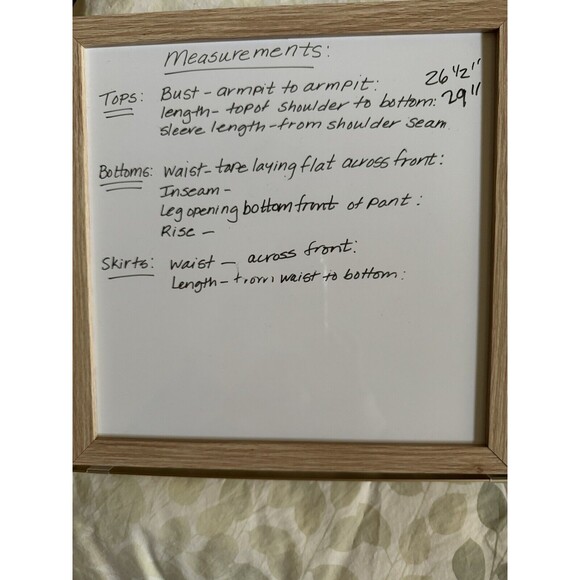 Measurements:
Tops: Bust - armpit to armpit: 26 1/2"
length - top of shoulder to bottom: 29"
sleeve length - from shoulder seam
Bottoms: Waist - tape laying flat across front:
Inseam -
Leg opening bottom front of pant:
Rise -
Skirts: waist - across front:
Length - from waist to bottom: